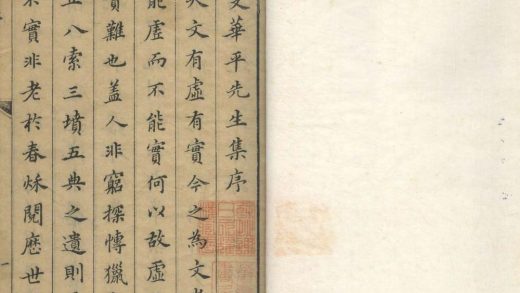 華平先生集序
文有虛有實今之為文
能虛而不能實何以故虛
難也盖人非窮探博獵
八索三墳五典之遺則
實非老於春秌閱歷世